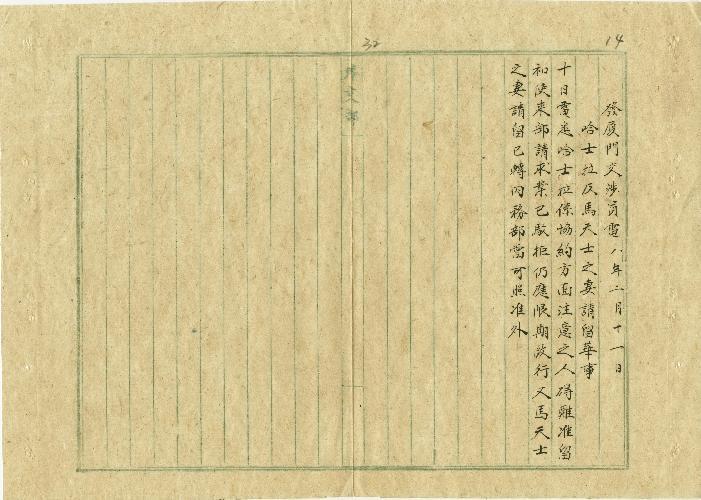 14
32
發廈門交涉員電八年二月十一日
哈士拉及馬天士之妻請留華事
十日電悉哈士拉係協約方面注意之人碍難准留
和使來部請求業已駁拒仍應限期啟行又馬天士
之妻請留已轉內務部當可照准外
外交部